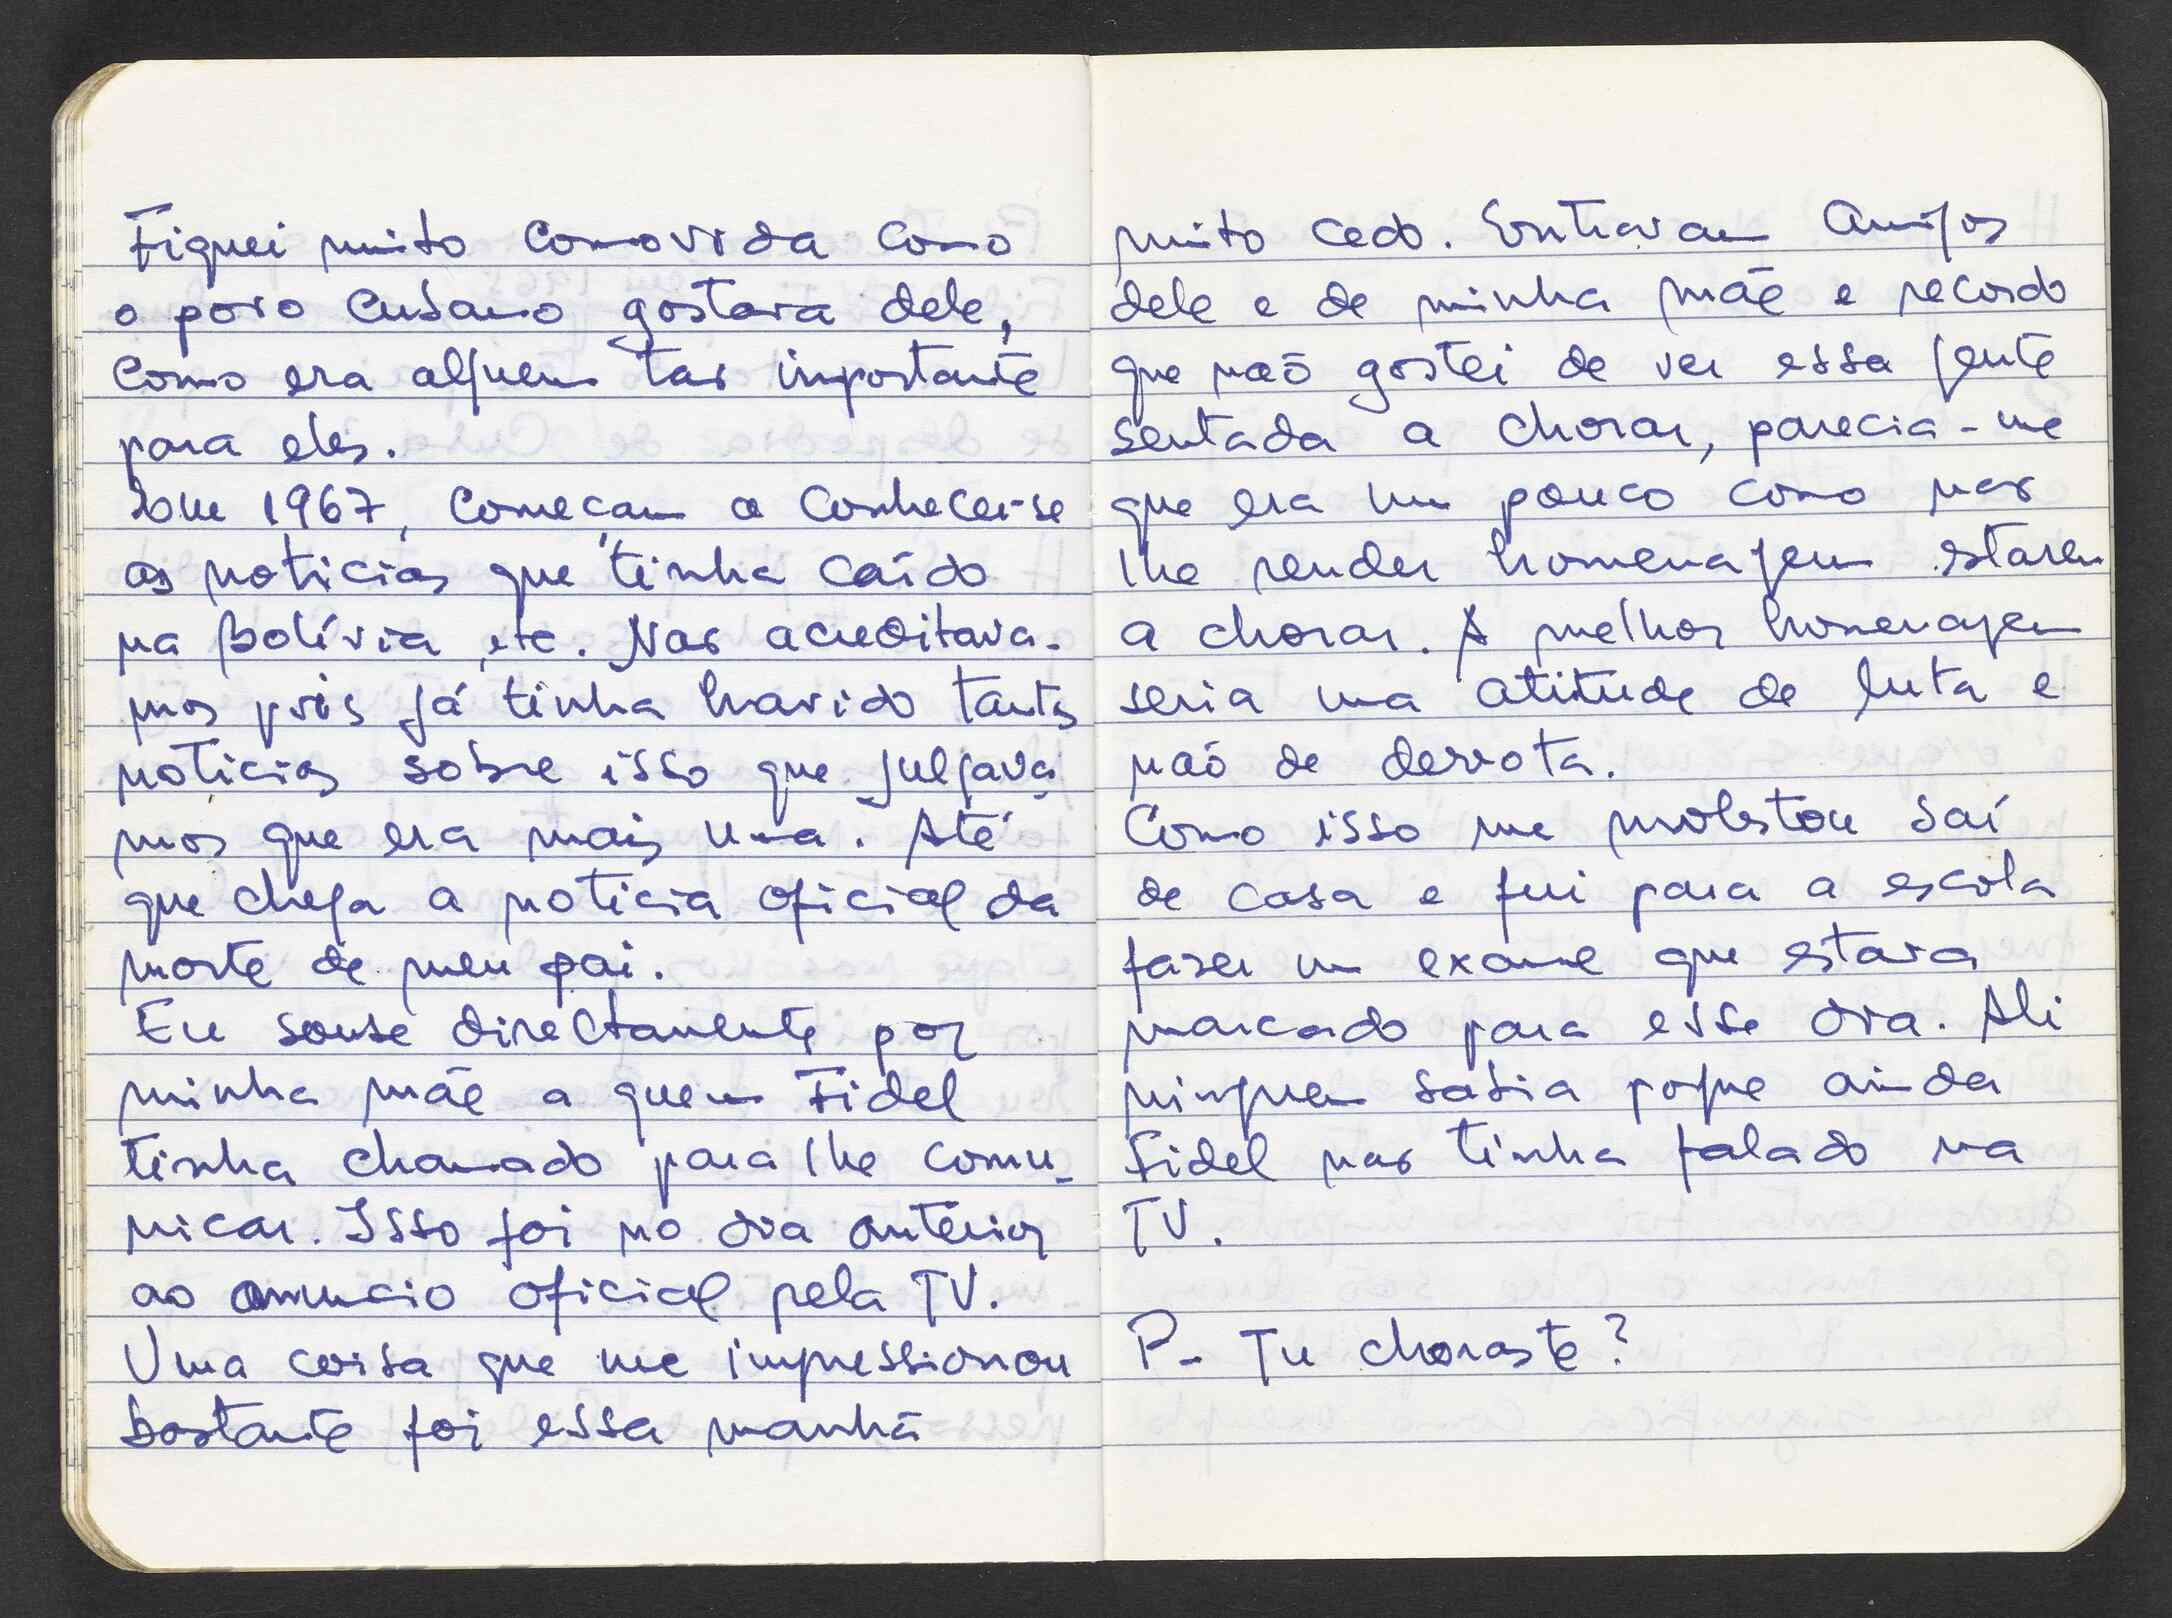 Fiquei muito comovida como
o povo cubano gostava dele,
como era alguem tão importante
para eles.
Em 1967, começam a conhecer-se
as noticias que tinha caído
na Bolívia, etc. Não acreditava-
mos pois já tinha havido tantas
noticias sobre isso que julgava-
mos que era mais uma. Até
que chega a noticia oficial da
morte de meu pai.
Eu soube directamente por
minha mãe a quem Fidel
tinha chamado para lhe comu-
nicar. Isso foi no dia anterior
ao anuncio oficial pela TV.
Uma coisa que me impressionou
bastante foi essa manhã
muito cedo. Entravam amigos
dele e de minha mãe e recordo
que não gostei de ver essa gente
sentada a chorar, parecia-me
que era um pouco como não
lhe render homenagem estarem
a chorar. A melhor homenagem
seria uma atitude de luta e
não de derrota.
Como isso me molestou saí
de casa e fui para a escola
fazer um exame que estava
marcado para esse dia. Ali
ninguem sabia porque ainda
Fidel não tinha falado na
TV.
P- Tu choraste?